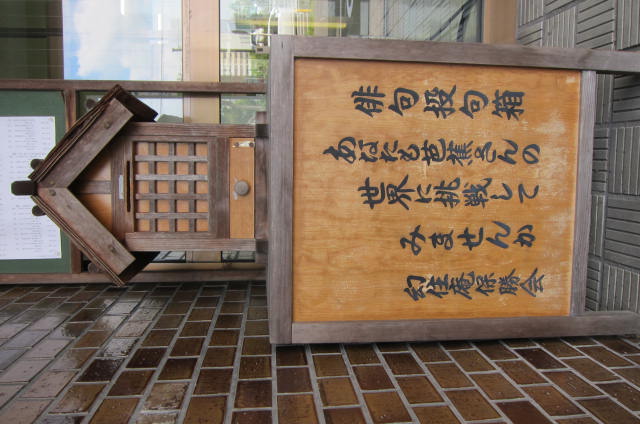 俳句投句箱
あなたも芭蕉さんの
世界に挑戦して
みませんか
幻住庵保勝会